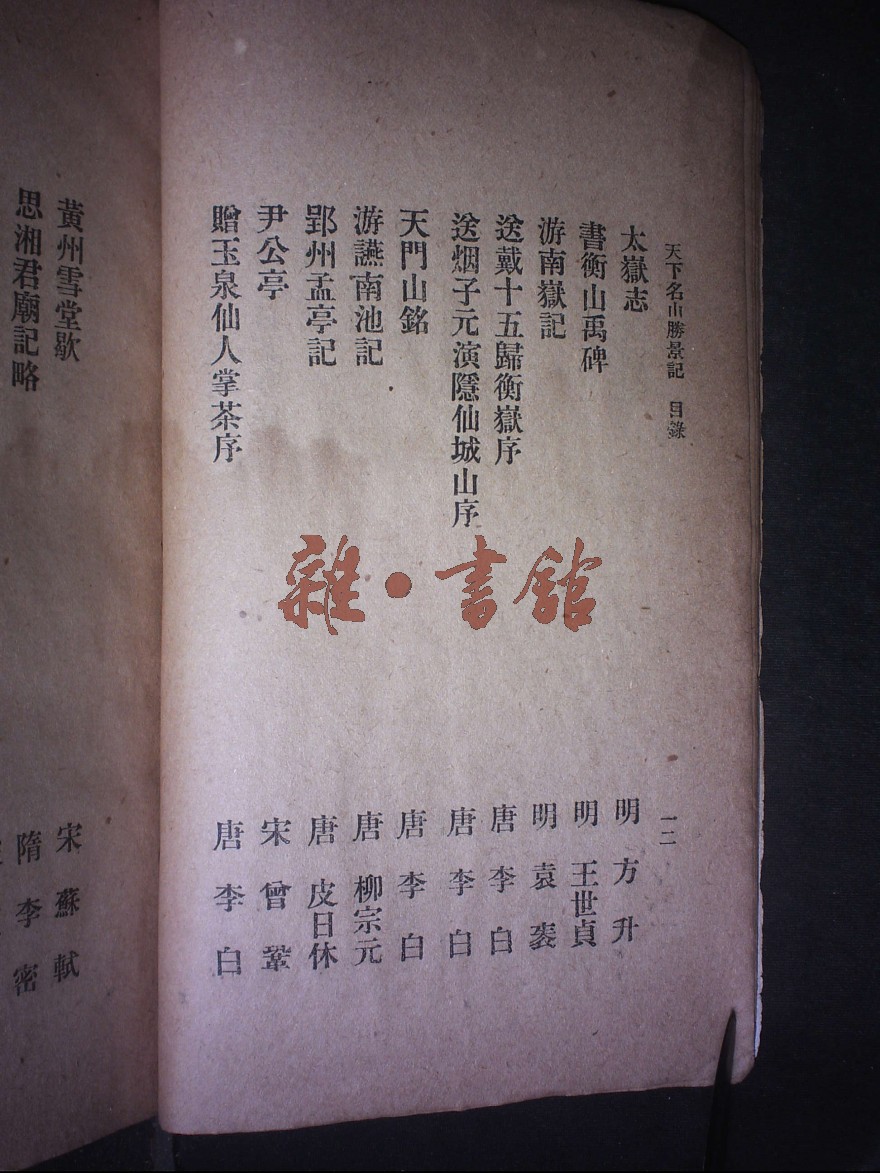 天下名山勝景記 目錄 一二
太嶽志 明 方升
書衡山禹碑 明 王世貞
游南嶽記 明 袁袠
送戴十五歸衡嶽序 唐 李白
送烟子元演隱仙城山序 唐 李白
天門山銘 唐 李白
游讌南池記 唐 柳宗元
郢州孟亭記 唐 皮日休
尹公亭 宋 曾鞏
贈玉泉仙人掌茶序 唐 李白
黃州雪堂歇 宋 蘇軾
思湘君廟記略 隋 李密
雜·書館